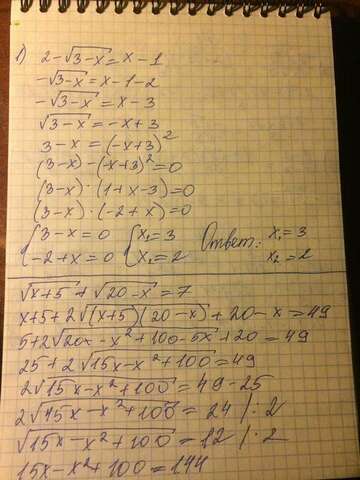 1) 2-√(3-x) = x-1
-√(3-x) = x-1-2
-√(3-x) = x-3
√(3-x) = -x+3
3-x = (-x+3)²
(3-x)-(-x+3)²=0
(3-x)·(1+x-3)=0
(3-x)·(-2+x)=0
{3-x=0 {x₁=3 Ответ: x₁=3
{-2+x=0 {x₁=2 x₂=2
√(x+5) + √(20-x) = 7
x+5+2√((x+5)(20-x)) + 20-x = 49
5+2√(20x-x²+100-5x) + 20 = 49
25+2√(15x-x²+100) = 49
2√(15x-x²+100) = 49-25
2√(15x-x²+100) = 24 /:2
√(15x-x²+100) = 12 /·2
15x-x²+100 = 144